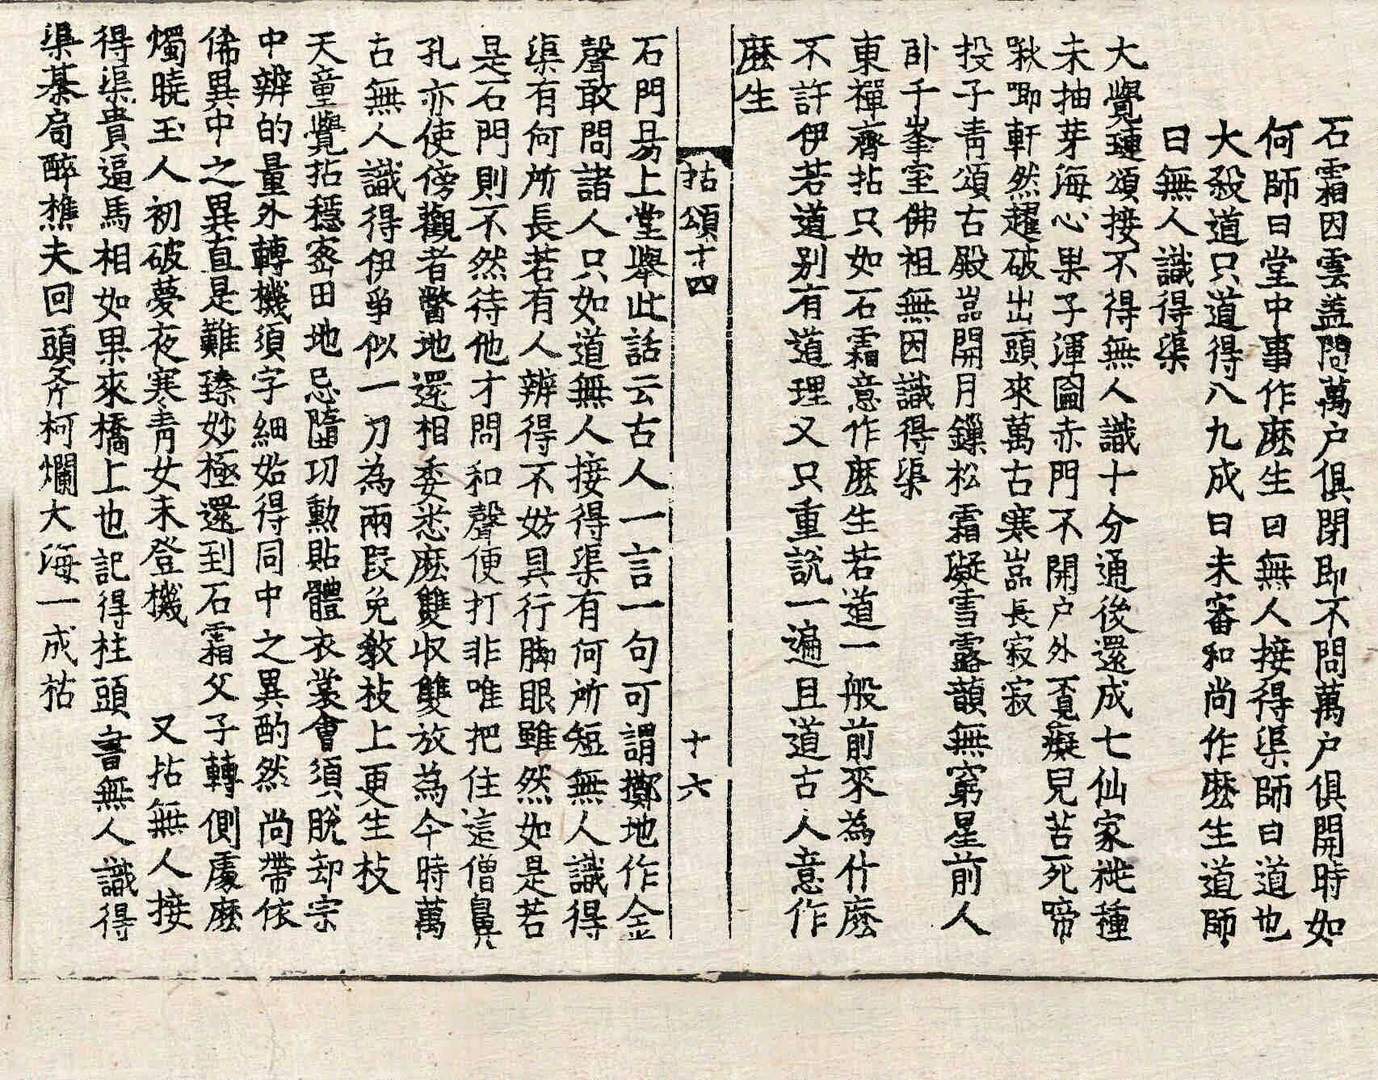 石霜因雲盖問萬户俱閉即不問萬户俱開時如
何師曰堂中事作麽生曰無人接得渠師曰道也
大殺道只道得八九成曰未審和尚作麽生道師
曰無人識得渠
大覺璉頌接不得無人識十分通後還成七仙家桃種
未抽芽海心果子渾圇赤門不開户外覔癡兒苦死啼
啾唧軒然趯破出頭來萬古寒嵓長寂寂
投子青頌古殿嵓開月鏁松霜凝雪露韻無窮星前人
卧千峯室佛祖無因識得渠
東禪齊拈只如石霜意作麽生若道一般前來為什麽
不許伊若道别有道理又只重説一遍且道古人意作
麽生
拈頌十四　十六
石門易上堂舉此話云古人一言一句可謂擲地作金
聲敢問諸人只如道無人接得渠有何所短無人識得
渠有何所長若有人辨得不妨具行脚眼雖然如是若
是石門則不然待他才問和聲便打非唯把住這僧鼻
孔亦使傍觀者瞥地還相委悉麽雙収雙放為今時萬
古無人識得伊爭似一刀為兩段免敎枝上更生枝
天童覺拈穩宻田地忌墮功勳貼體衣裳會須脫却宗
中辨的量外轉機須字細始得同中之異酌然尚帶依
俙異中之異直是難臻妙極還到石霜父子轉側處麽
燭曉玉人初破夢夜寒青女未登機　又拈無人接
得渠貴逼馬相如果來橋上也記得柱頭書無人識得
渠棊局醉樵夫回頭斧柯爛大海一成枯